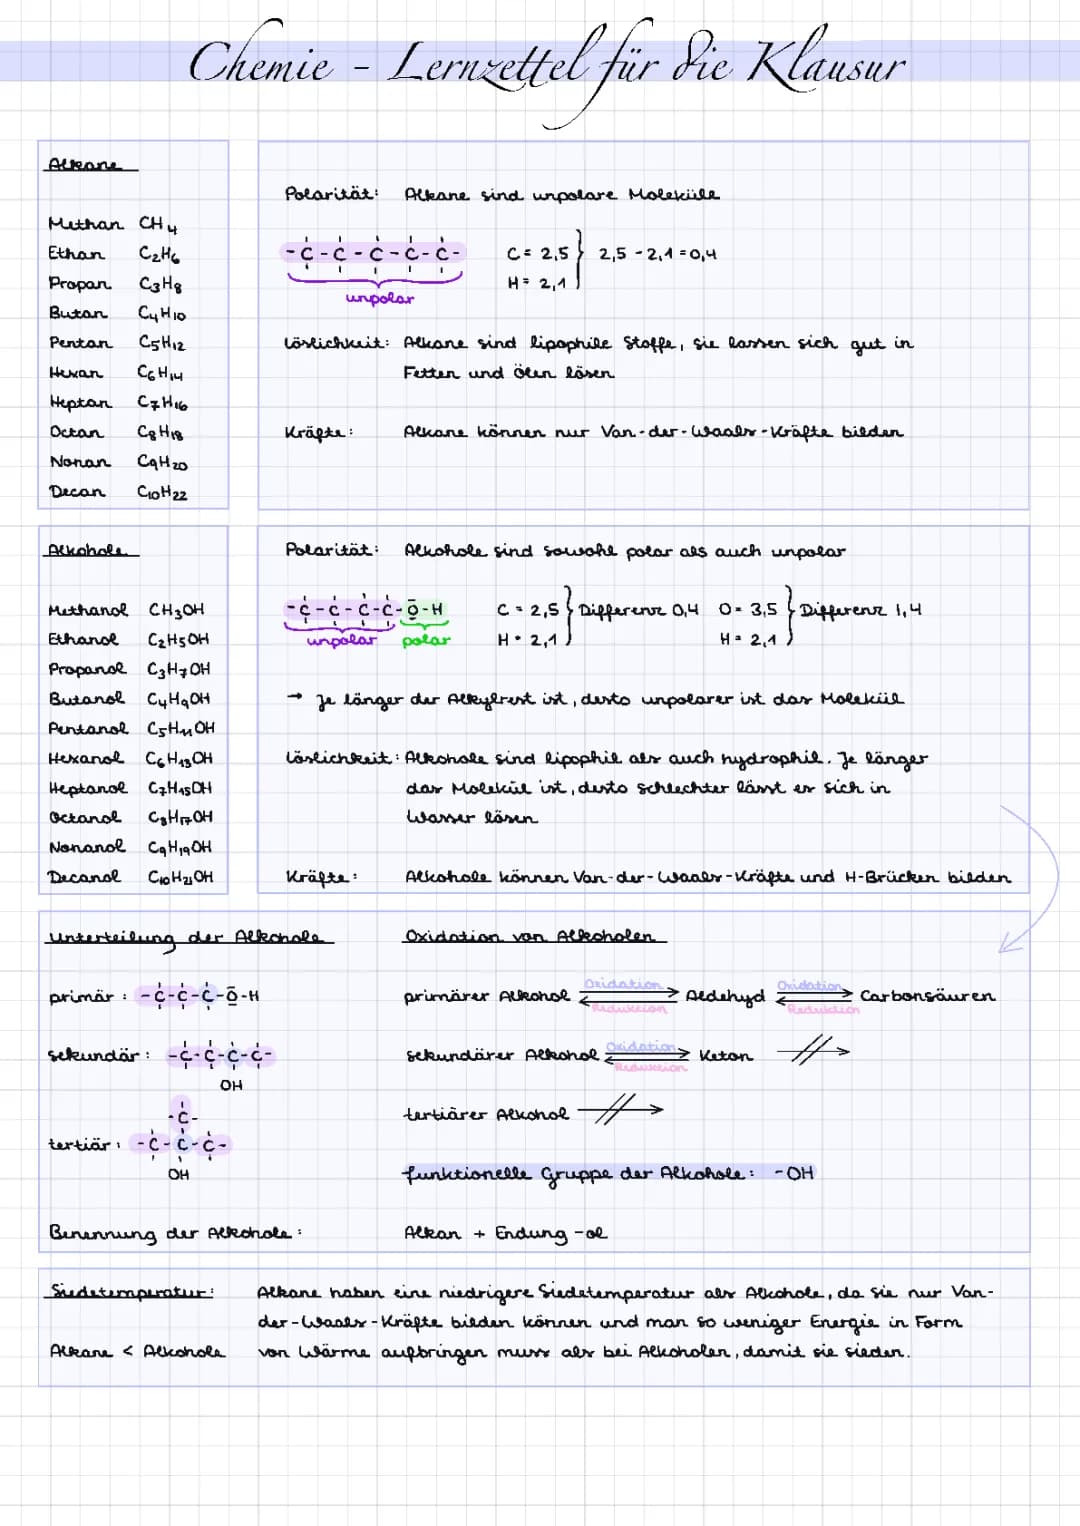 Chemie - Lernzettel für die Klausur
Alkane
Methan CH₄
Ethan C₂H₆
Propan C₃H₈
Butan C₄H₁₀
Pentan C₅H₁₂
Hexan C₆H₁₄
Heptan C₇H₁₆
Octan C₈H₁₈
Nonan C₉H₂₀
Decan C₁₀H₂₂
Polarität: Alkane sind unpolare Moleküle
-C-C-C-C-C- C = 2,5 } 2,5 - 2,1 = 0,4
H = 2,1
unpolar
Löslichkeit: Alkane sind lipophile Stoffe, sie lassen sich gut in
Fetten und Ölen lösen
Kräfte: Alkane können nur Van-der-Waals-Kräfte bilden
Alkohole
Methanol CH₃OH
Ethanol C₂H₅OH
Propanol C₃H₇OH
Butanol C₄H₉OH
Pentanol C₅H₁₁OH
Hexanol C₆H₁₃OH
Heptanol C₇H₁₅OH
Octanol C₈H₁₇OH
Nonanol C₉H₁₉OH
Decanol C₁₀H₂₁OH
Polarität: Alkohole sind sowohl polar als auch unpolar
-C-C-C-C-O-H C = 2,5 } Differenz 0,4 O = 3,5 } Differenz 1,4
unpolar polar H = 2,1 H = 2,1
→ Je länger der Alkylrest ist, desto unpolarer ist das Molekül
Löslichkeit: Alkohole sind lipophil als auch hydrophil. Je länger
das Molekül ist, desto schlechter lässt es sich in
Wasser lösen
Kräfte: Alkohole können Van-der-Waals-Kräfte und H-Brücken bilden
Unterteilung der Alkohole
primär: -C-C-C-O-H
sekundär: -C-C-C-C-
OH
-C-
tertiär: -C-C-C-
OH
Oxidation von Alkoholen
primärer Alkohol Oxidation Reduktion Aldehyd Oxidation Reduktion Carbonsäuren
sekundärer Alkohol Oxidation Reduktion Keton
tertiärer Alkohol
funktionelle Gruppe der Alkohole: -OH
Benennung der Alkohole: Alkan + Endung -ol
Siedetemperatur:
Alkane < Alkohole
Alkane haben eine niedrigere Siedetemperatur als Alkohole, da sie nur Van-
der-Waals-Kräfte bilden können und man so weniger Energie in Form
von Wärme aufbringen muss als bei Alkoholen, damit sie sieden.